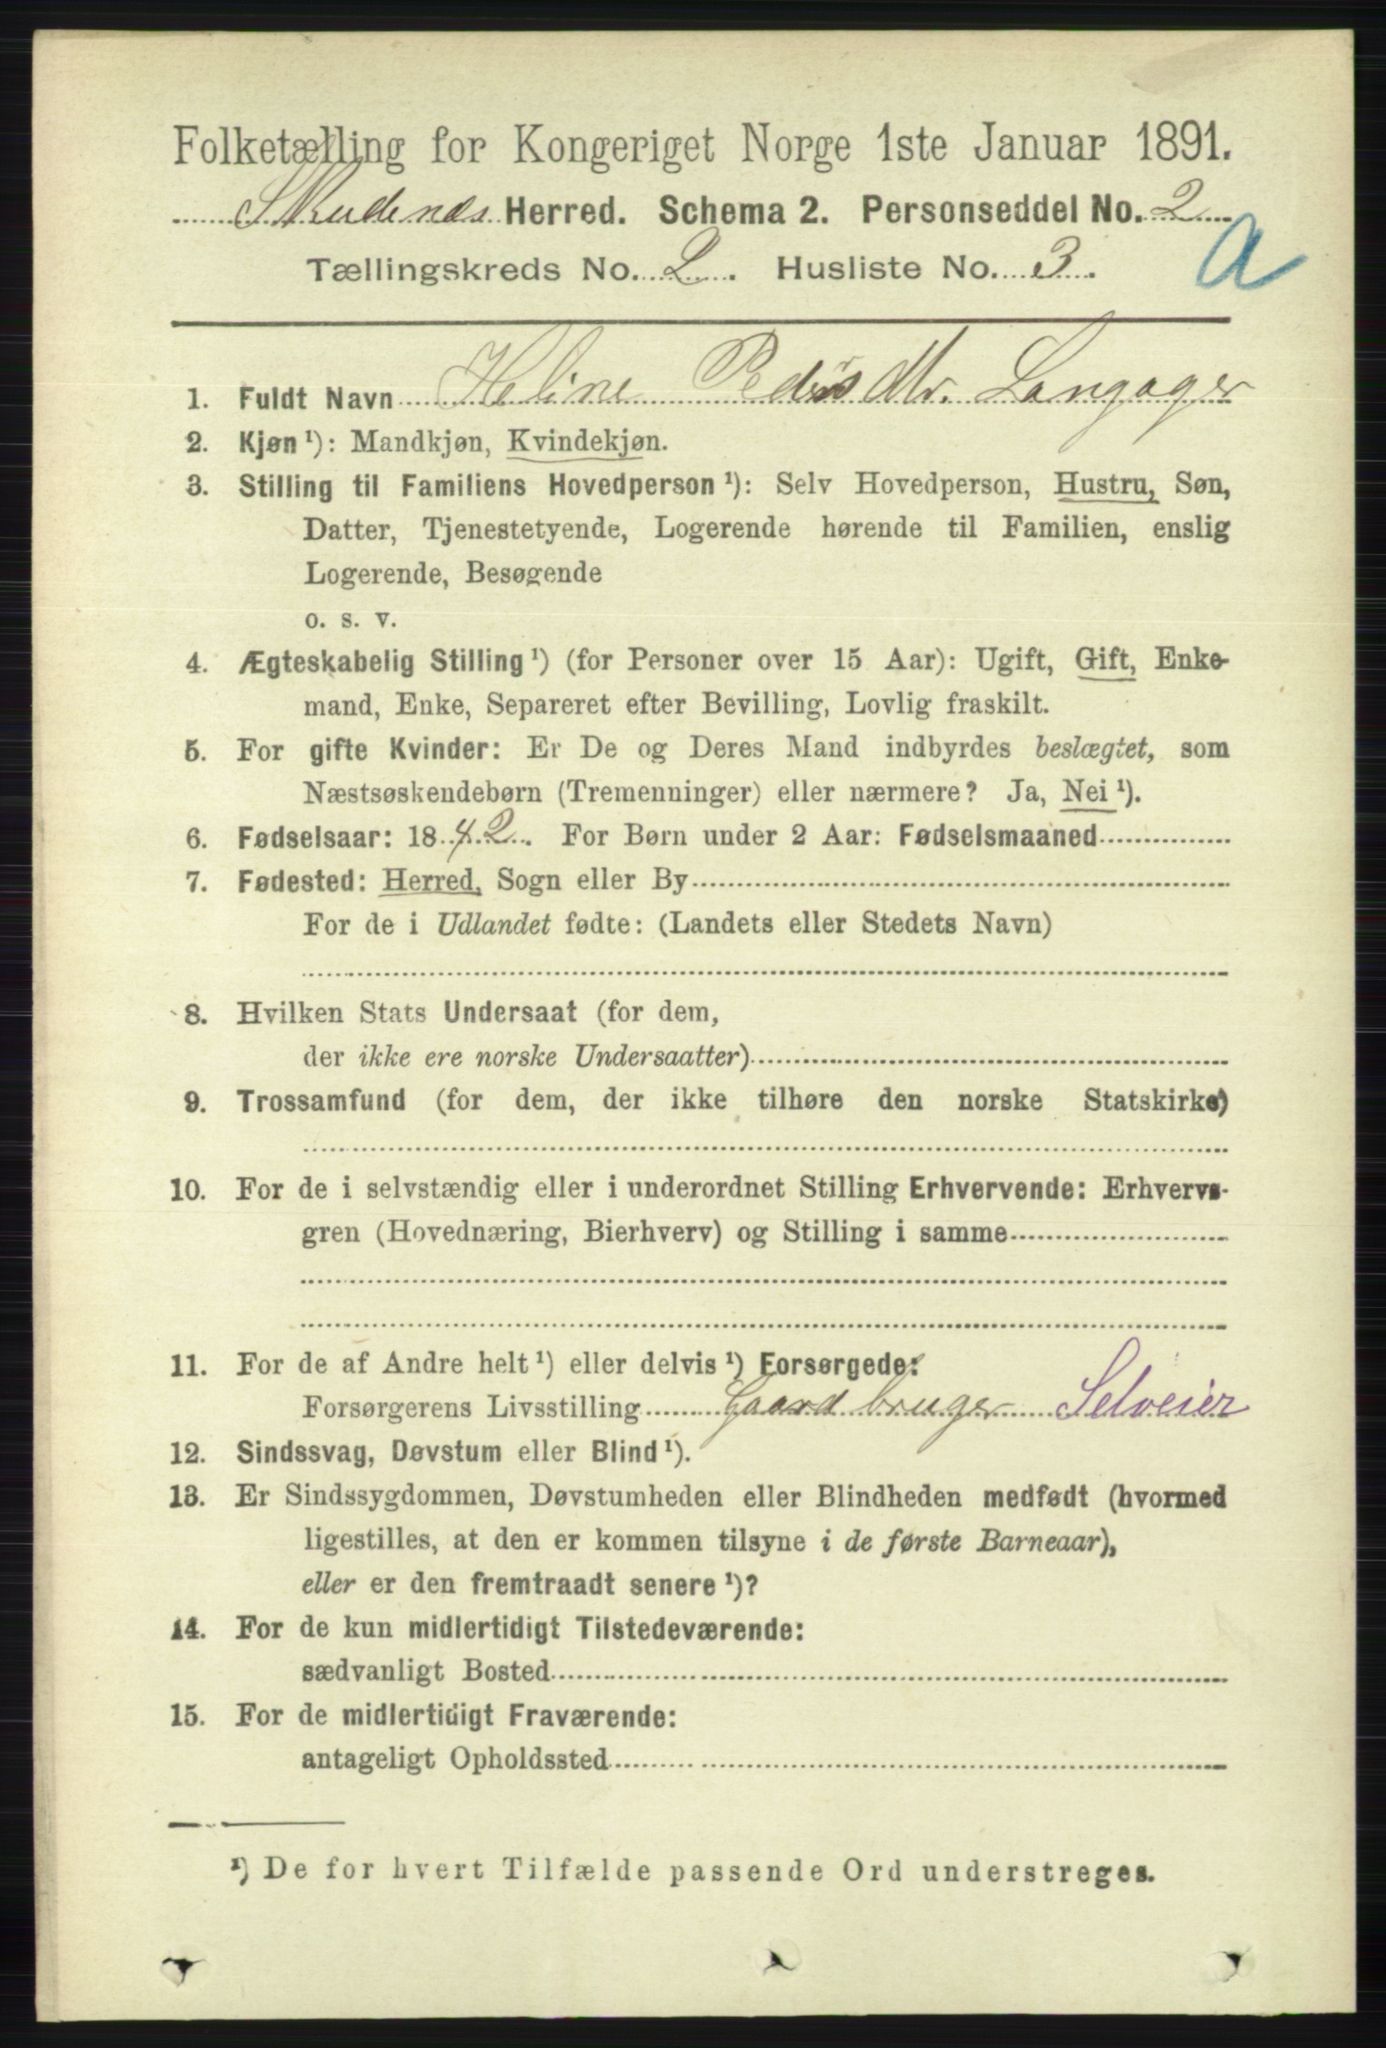 Folketælling for Kongeriget Norge 1ste Januar 1891.
Skudenes Herred. Schema 2. Personseddel No. 2
Tællingskreds No. 2. Husliste No. 3.
a
1. Fuldt Navn Heline Peders Dtr. Langager
2. Kjøn ¹): Mandkjøn, Kvindekjøn.
3. Stilling til Familiens Hovedperson ¹): Selv Hovedperson, Hustru, Søn,
Datter, Tjenestetyende, Logerende hørende til Familien, enslig
Logerende, Besøgende
o. s. v.
4. Ægteskabelig Stilling ¹) (for Personer over 15 Aar): Ugift, Gift, Enke-
mand, Enke, Separeret efter Bevilling, Lovlig fraskilt.
5. For gifte Kvinder: Er De og Deres Mand indbyrdes beslægtet, som
Næstsøskendebørn (Tremenninger) eller nærmere? Ja, Nei ¹).
6. Fødselsaar: 1842. For Børn under 2 Aar: Fødselsmaaned
7. Fødested: Herred, Sogn eller By
For de i Udlandet fødte: (Landets eller Stedets Navn)
8. Hvilken Stats Undersaat (for dem,
der ikke ere norske Undersaatter)
9. Trossamfund (for dem, der ikke tilhøre den norske Statskirke)
10. For de i selvstændig eller i underordnet Stilling Erhvervende: Erhvervs-
gren (Hovednæring, Bierhverv) og Stilling i samme
11. For de af Andre helt ¹) eller delvis ¹) Forsørgede:
Forsørgerens Livsstilling Gaardbruger Selveier
12. Sindssvag, Døvstum eller Blind ¹).
13. Er Sindssygdommen, Døvstumheden eller Blindheden medfødt (hvormed
ligestilles, at den er kommen tilsyne i de første Barneaar),
eller er den fremtraadt senere ¹)?
14. For de kun midlertidigt Tilstedeværende:
sædvanligt Bosted
15. For de midlertidigt Fraværende:
antageligt Opholdssted
¹) De for hvert Tilfælde passende Ord understreges.